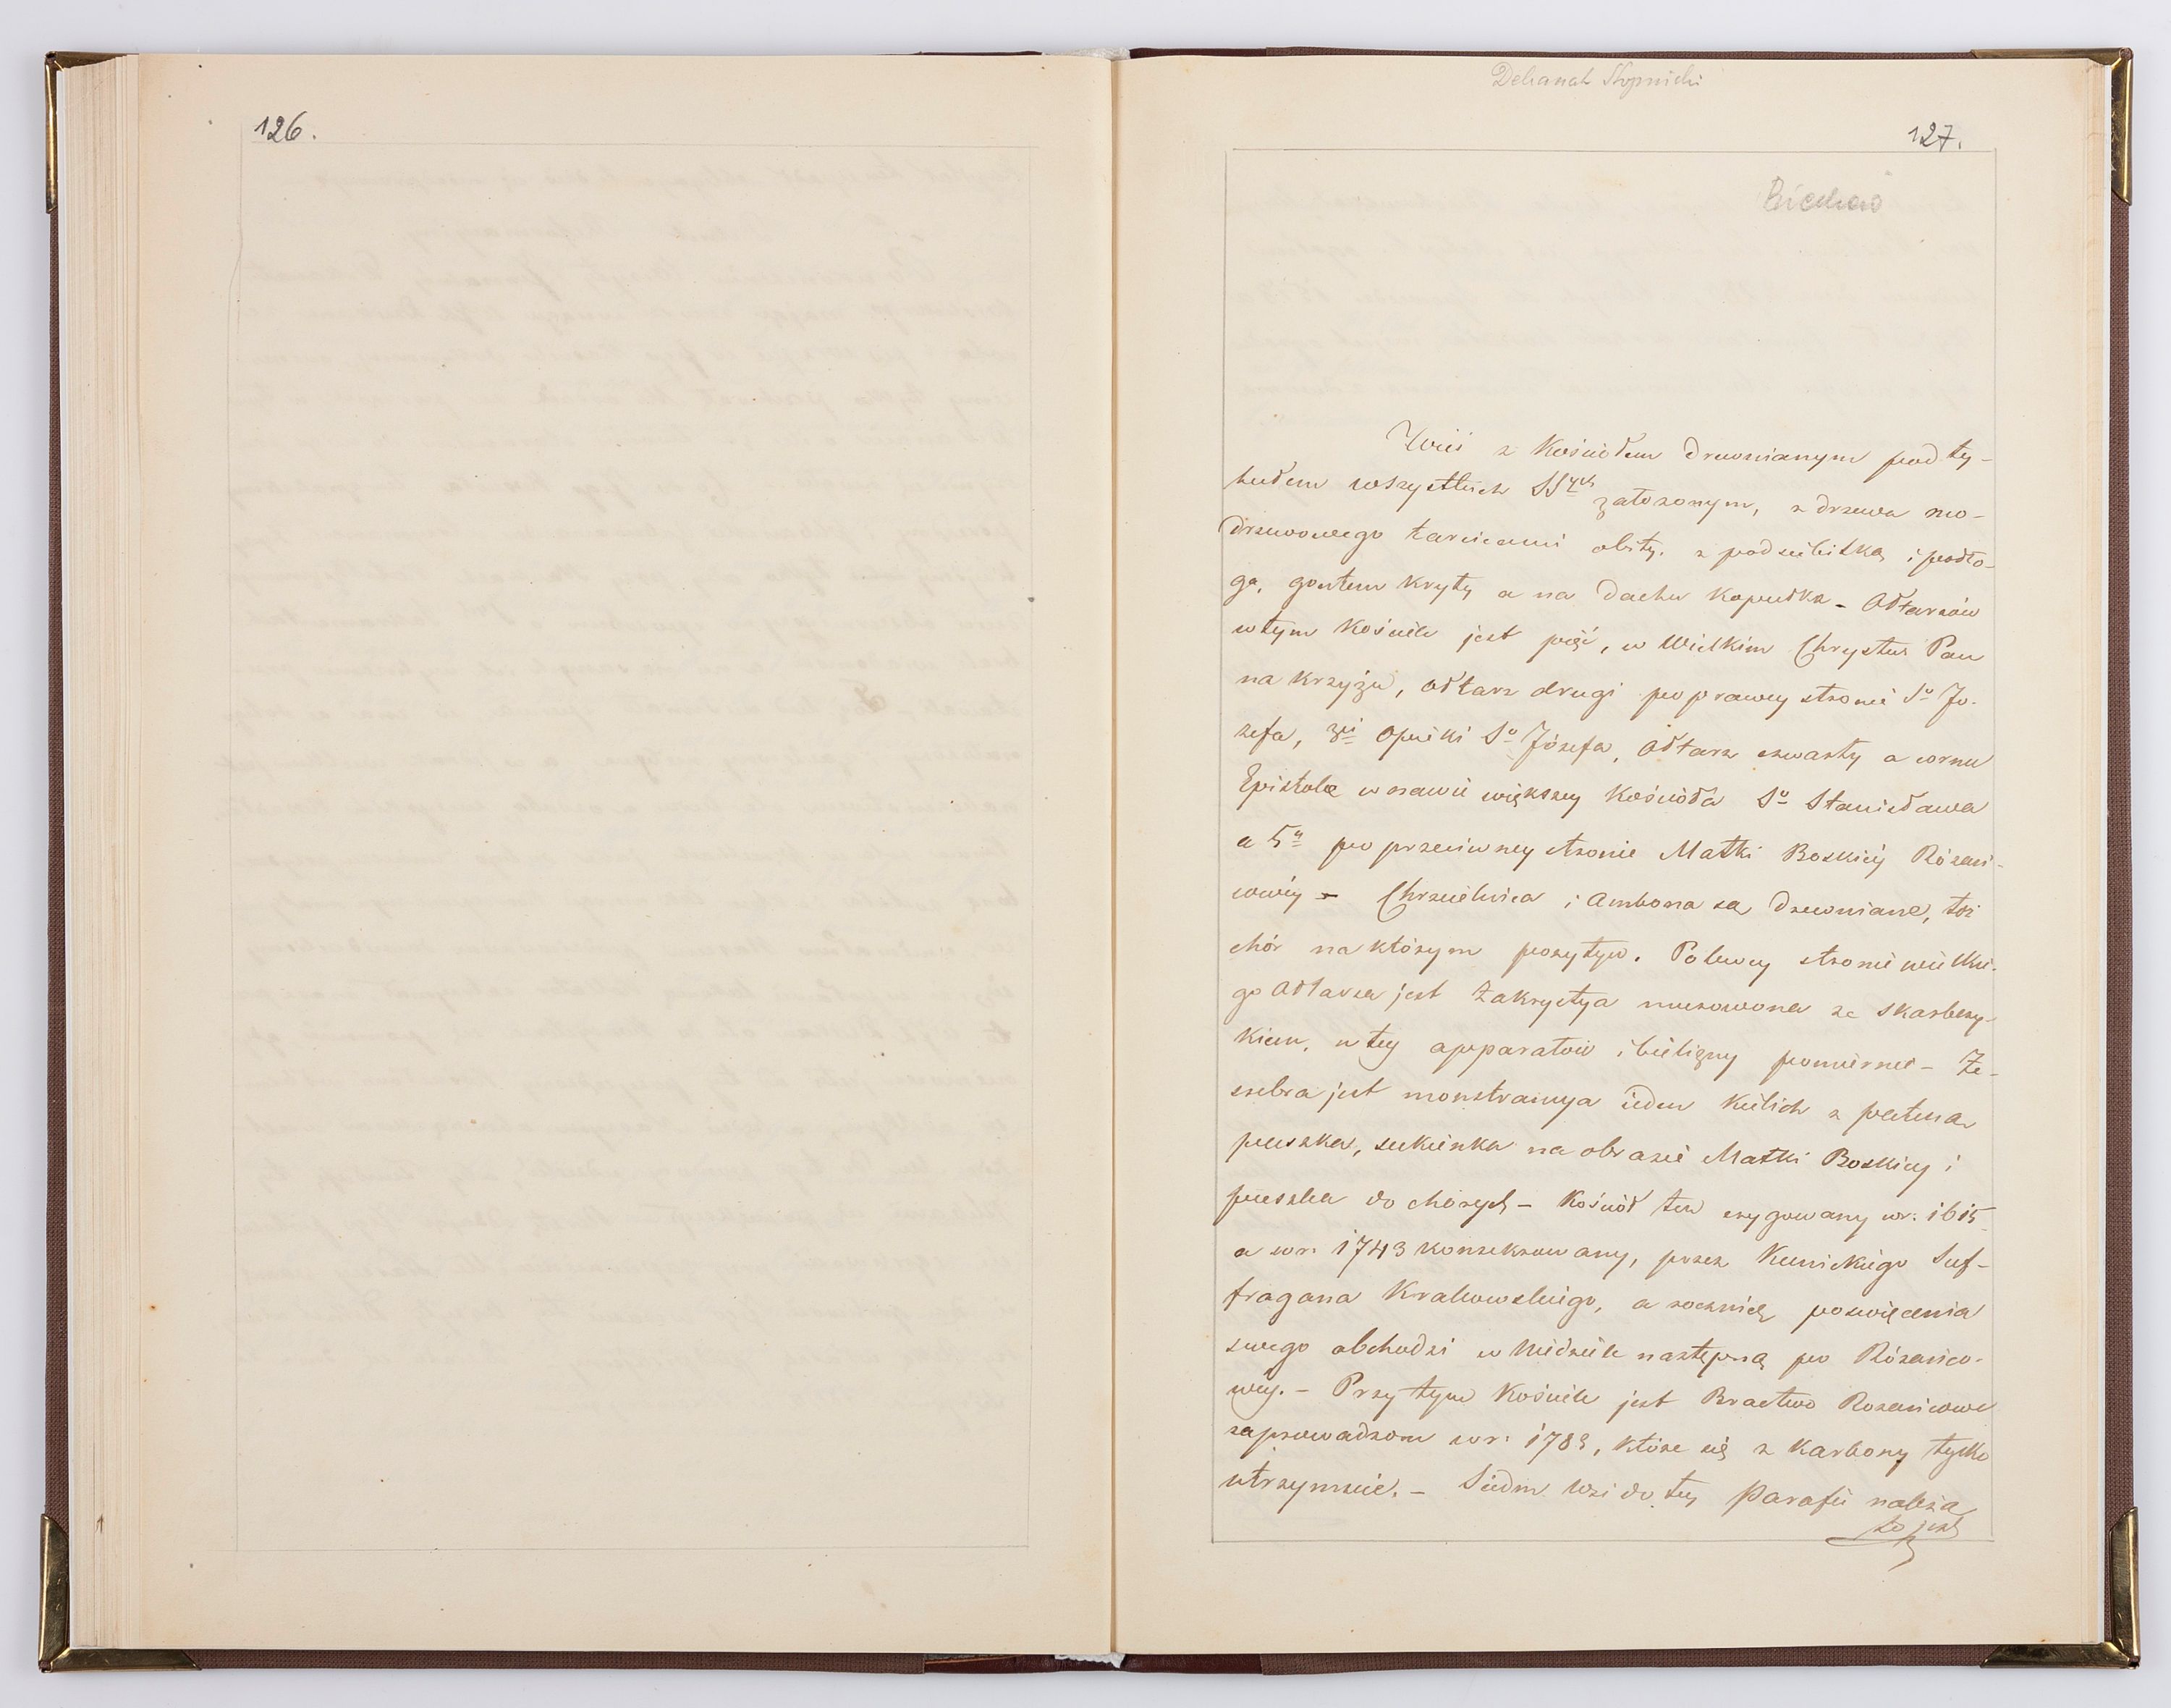 126.
Dekanat Stopnicki
127.
Biechów
Wieś z Kościołem drewnianym pod ty-
tułem wszystkich SSych założonym, z drzewa mo-
drzewowego tarcicami obity, z podsiebitką i podło-
gą, gontem kryty a na dachu kopułka – Ołtarzów
w tym Kościele jest pięć, w Wielkim Chrystus Pan
na krzyżu, ołtarz drugi po prawey stronie So Jó-
zefa, 3ci Opieki So Józefa, Ołtarz czwarty a cornu
Epistolæ w nawie większey Kościoła So Stanisława
a 5y po przeciwney stronie Matki Boskiéy Różań-
cowéy – Chrzcielnica i Ambona są drewniane, toż
chór na którym pozytyw. Po lewey stronie wielkie-
go Ołtarza jest Zakrystya murowana ze skarbczy-
kiem, w tey apparatów i bielizny pomiernie – Ze
srebra jest monstrancya ieden kielich z pateną
puszka, sukienka na obrazie Matki Boskiey i
puszka do chorych – Kościół ten erygowany w r: 1615
a w r: 1743 konsekrowany, przez Kunickiego Suf-
fragana Krakowskiego, a rocznicę poswięcenia
swego obchodzi w Niedziele następną po Różańco-
wey. – Przy tym Kościele jest Bractwo Rozańcowe
zaprowadzone w r: 1783, które się z Karbony tylko
utrzymuie. – Siedm wsi do tey Parafii należą
to jest